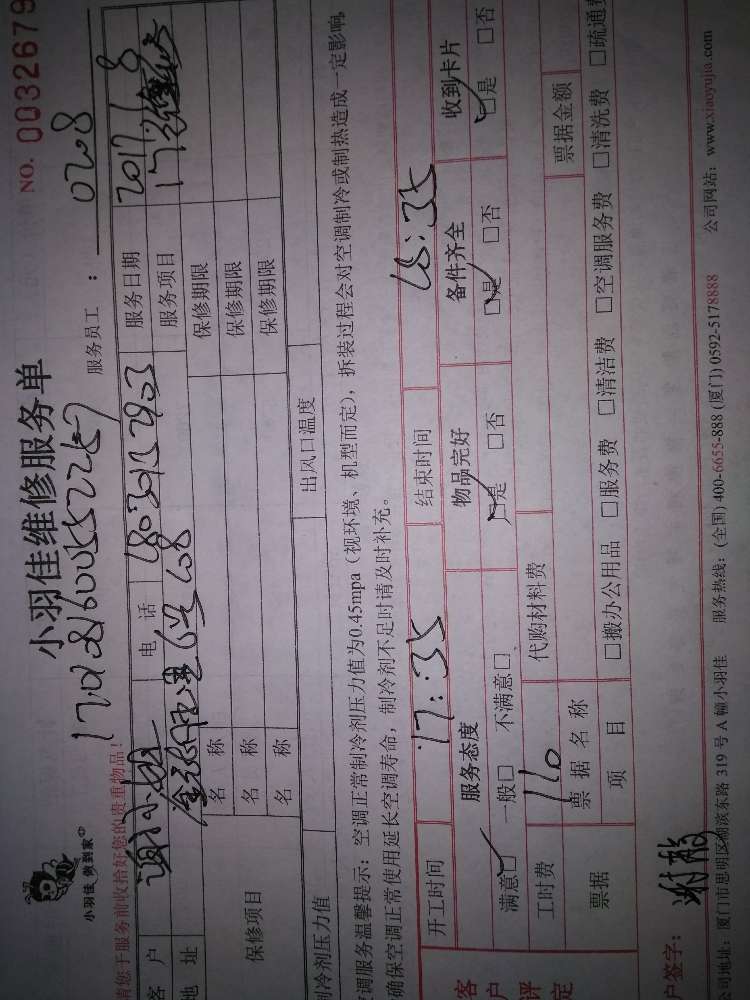 小羽佳维修服务单
NO. 0032679
小羽佳 佛到家
请您于服务前收拾好您的贵重物品!
服务员工: 0208
客户 谢小姐 电话 服务日期 2017.1.8
地址 服务项目
保修项目 名称 保修期限
名称 保修期限
名称 保修期限
制冷剂压力值 出风口温度
空调服务温馨提示:空调正常制冷剂压力值为0.45mpa(视环境、机型而定),拆装过程会对空调制冷或制热造成一定影响,
确保空调正常使用延长空调寿命,制冷剂不足时请及时补充。
开工时间 17:35 结束时间 18:35
客户评定 服务态度 物品完好 备件齐全 收到卡片
满意□ 一般□ 不满意□ □是 □否 □是 □否 □是 □否
工时费 110 代购材料费
票据 票据名称 票据金额
项目 □搬办公用品 □服务费 □清洁费 □空调服务费 □清洗费 □疏通费
户签字:
公司地址:厦门市思明区湖滨东路319号A幢小羽佳 服务热线:(全国)400-6655-888 (厦门)0592-5178888 公司网站:www.xiaoyujia.com